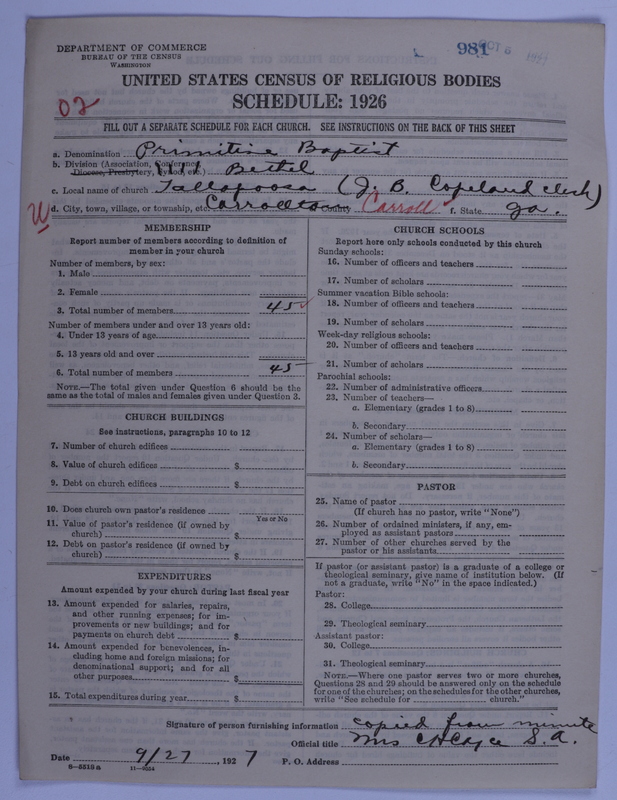 DEPARTMENT OF COMMERCE
BUREAU OF THE CENSUS
WASHINGTON
981
OCT 6 1927
UNITED STATES CENSUS OF RELIGIOUS BODIES
SCHEDULE: 1926
02
FILL OUT A SEPARATE SCHEDULE FOR EACH CHURCH. SEE INSTRUCTIONS ON THE BACK OF THIS SHEET
a. Denomination Primitive Baptist
b. Division (Association, Conference, Diocese, Presbytery, Synod, etc.) Bethel
c. Local name of church Tallapoosa (J. B. Copeland clerk)
W d. City, town, village, or township, etc. Carrollton County Carroll f. State ga.
MEMBERSHIP
Report number of members according to definition of
member in your church
Number of members, by sex:
1. Male
2. Female
3. Total number of members 45
Number of members under and over 13 years old:
4. Under 13 years of age
5. 13 years old and over
6. Total number of members 45
NOTE.—The total given under Question 6 should be the
same as the total of males and females given under Question 3.
CHURCH BUILDINGS
See instructions, paragraphs 10 to 12
7. Number of church edifices
8. Value of church edifices $
9. Debt on church edifices $
10. Does church own pastor's residence
Yes or No
11. Value of pastor's residence (if owned by
church) $
12. Debt on pastor's residence (if owned by
church) $
EXPENDITURES
Amount expended by your church during last fiscal year
13. Amount expended for salaries, repairs,
and other running expenses; for im-
provements or new buildings; and for
payments on church debt $
14. Amount expended for benevolences, in-
cluding home and foreign missions; for
denominational support; and for all
other purposes $
15. Total expenditures during year $
CHURCH SCHOOLS
Report here only schools conducted by this church
Sunday schools:
16. Number of officers and teachers
17. Number of scholars
Summer vacation Bible schools:
18. Number of officers and teachers
19. Number of scholars
Week-day religious schools:
20. Number of officers and teachers
21. Number of scholars
Parochial schools:
22. Number of administrative officers
23. Number of teachers—
a. Elementary (grades 1 to 8)
b. Secondary
24. Number of scholars—
a. Elementary (grades 1 to 8)
b. Secondary
PASTOR
25. Name of pastor
(If church has no pastor, write "None")
26. Number of ordained ministers, if any, em-
ployed as assistant pastors
27. Number of other churches served by the
pastor or his assistants
If pastor (or assistant pastor) is a graduate of a college or
theological seminary, give name of institution below. (If
not a graduate, write "No" in the space indicated.)
Pastor:
28. College
29. Theological seminary
Assistant pastor:
30. College
31. Theological seminary
NOTE.—Where one pastor serves two or more churches,
Questions 28 and 29 should be answered only on the schedule
for one of the churches; on the schedules for the other churches,
write "See schedule for church."
Signature of person furnishing information copied from minute
Official title Mrs C H Cayce S. A.
Date 9/27, 1927 P. O. Address
8—5518 a 11—9524